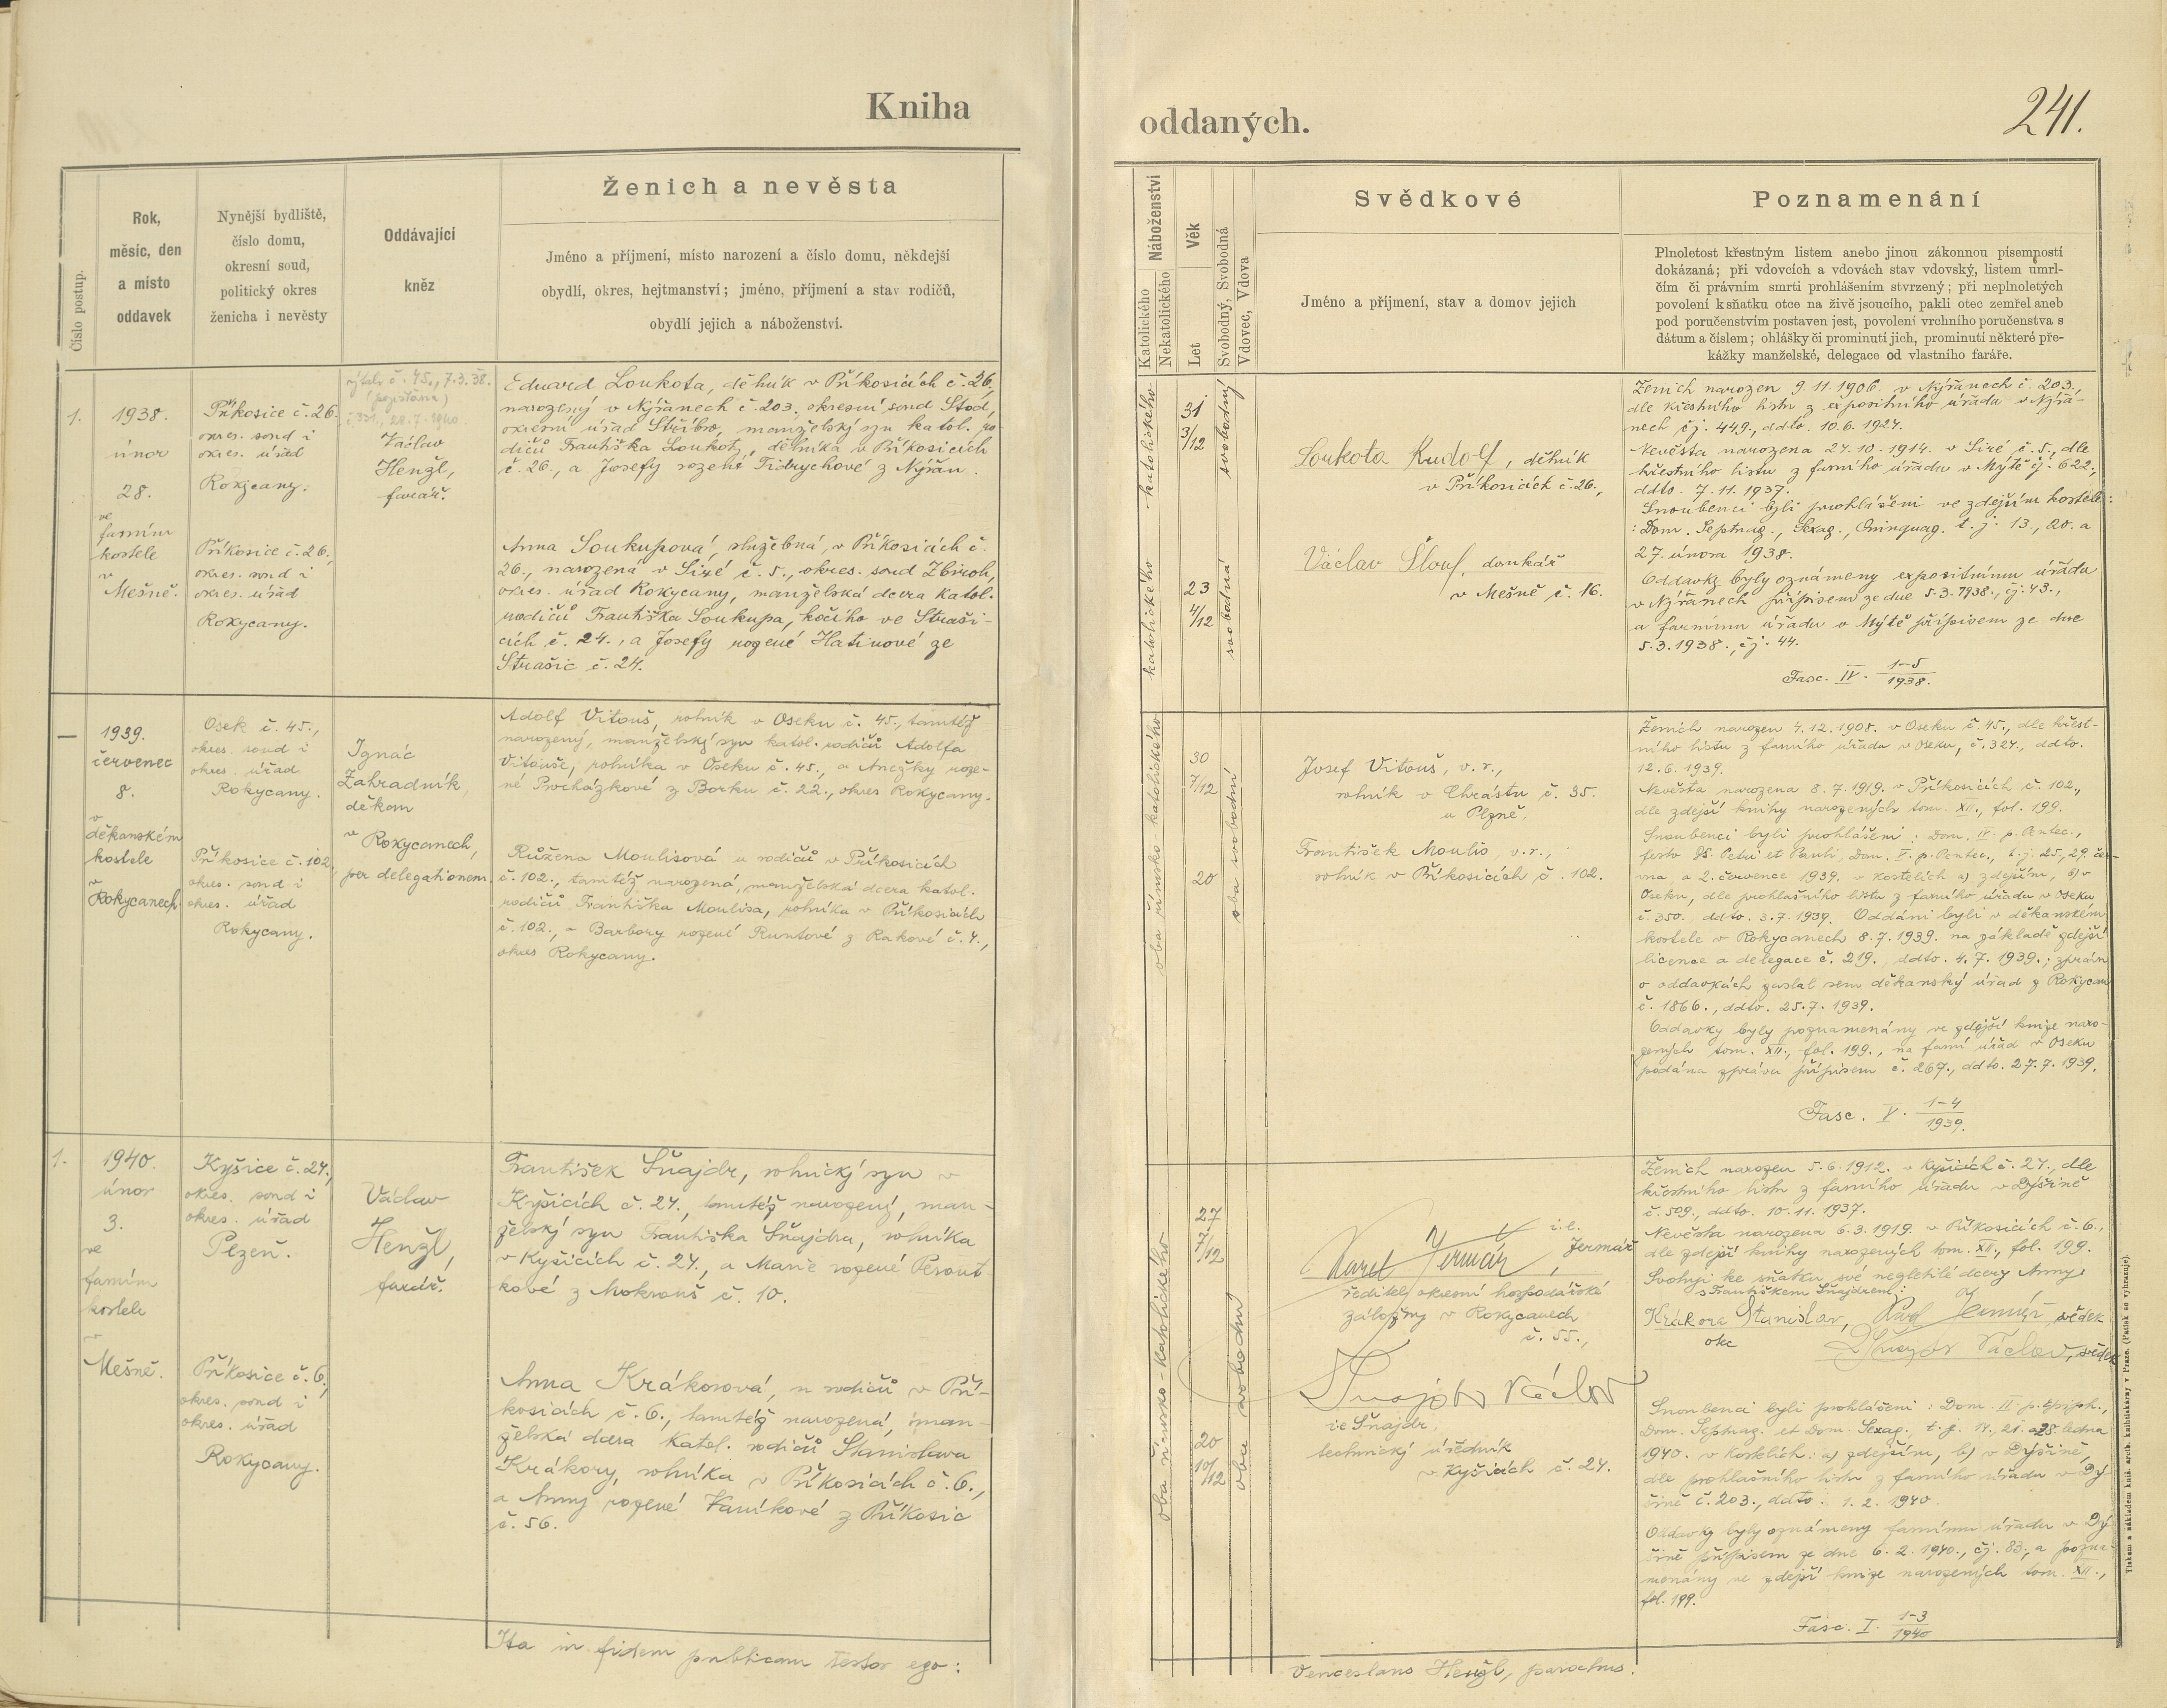 Kniha
oddaných.
241.
Číslo postup.
Rok,
měsíc, den
a místo
oddavek
Nynější bydliště,
číslo domu,
okresní soud,
politický okres
ženicha i nevěsty
Oddávající
kněz
Ženich a nevěsta
Jméno a příjmení, místo narození a číslo domu, někdejší
obydlí, okres, hejtmanství; jméno, příjmení a stav rodičů,
obydlí jejich a náboženství.
Náboženství
Katolického
Nekatolického
Věk
Let
Svobodný, Svobodná
Vdovec, Vdova
Svědkové
Jméno a příjmení, stav a domov jejich
Poznamenání
Plnoletost křestným listem anebo jinou zákonnou písemností
dokázaná; při vdovcích a vdovách stav vdovský, listem úmrl-
čím či právním smrti prohlášením stvrzený; při neplnoletých
povolení k sňatku otce na živě jsoucího, pakli otec zemřel aneb
pod poručenstvím postaven jest, povolení vrchního poručenstva s
dátum a číslem; ohlášky či prominutí jich, prominutí některé pře-
kážky manželské, delegace od vlastního faráře.
1.
1938.
únor
28.
ve
farním
kostele
v
Mešně.
Příkosice č. 26.
okres. soud i
okres. úřad
Rokycany.
Příkosice č. 26,
okres. soud i
okres. úřad
Rokycany.
č. 45., 7.3.38.
28.7.1940.
Václav
Henžl,
farář.
Eduard Loukota, dělník v Příkosicích č. 26,
narozený v Nýřanech č. 203., okresní soud Stod,
okresní úřad Stříbro, manželský syn katol. ro-
dičů Františka Loukoty, dělníka v Příkosicích
č. 26., a Josefy rozené Tidrychové z Nýřan.
Anna Soukupová, služebná, v Příkosicích č.
26., narozená v Siré č. 5., okres. soud Zbiroh,
okres. úřad Rokycany, manželská dcera katol.
rodičů Františka Soukupa, kočího ve Straši-
cích č. 24., a Josefy rozené Hatinové ze
Strašic č. 24.
katolického
katolického
31
3/12
23
4/12
svobodný
svobodná
Loukota Rudolf, dělník
v Příkosicích č. 26.,
Václav Šlouf, domkář
v Mešně č. 16.
Ženich narozen 9.11.1906. v Nýřanech č. 203.,
dle křestního listu z expositního úřadu v Nýřa-
nech čj. 449., ddto. 10.6.1927.
Nevěsta narozena 27.10.1914. v Siré, č. 5., dle
křestního listu z farního úřadu v Mýtě čj. 622.,
ddto. 7.11.1937.
Snoubenci byli prohlášeni ve zdejším kostele:
: Dom. Septuag., Sexag., Quinquag. t. j. 13., 20. a
27. února 1938.
Oddavky byly oznámeny expositnímu úřadu
v Nýřanech přípisem ze dne 5.3.1938., čj. 43.,
a farnímu úřadu v Mýtě přípisem ze dne
5.3.1938., čj. 44.
Fasc. IV. 1-5/1938.
—
1939.
červenec
8.
v
děkanském
kostele
v
Rokycanech.
Osek č. 45.,
okres. soud i
okres. úřad
Rokycany.
Příkosice č. 102,
okres. soud i
okres. úřad
Rokycany.
Ignác
Zahradník,
děkan
v Rokycanech,
per delegationem.
Adolf Vitouš, rolník v Oseku č. 45., tamtéž
narozený, manželský syn katol. rodičů Adolfa
Vitouše, rolníka v Oseku č. 45., a Anežky roze-
né Procházkové z Borku č. 22., okres Rokycany.
Růžena Moulisová u rodičů v Příkosicích
č. 102., tamtéž narozená, manželská dcera katol.
rodičů Františka Moulisa, rolníka v Příkosicích
č. 102., a Barbory rozené Runtové z Rakové č. 4.,
okres Rokycany.
oba římsko katolického
30
7/12
20
oba svobodní
Josef Vitouš, v. r.,
rolník v Chrástu č. 35.
u Plzně.
František Moulis, v.r.,
rolník v Příkosicích č. 102.
Ženich narozen 4.12.1908. v Oseku č. 45., dle křest-
ního listu z farního úřadu v Oseku, č. 327., ddto.
12.6.1939.
Nevěsta narozena 8.7.1919. v Příkosicích č. 102.,
dle zdejší knihy narozených tom. XII., fol. 199.
Snoubenci byli prohlášeni: Dom. IV. p. Pentec.,
festo SS. Petri et Pauli, Dom. V. p. Pentec., t. j. 25., 29. čer-
vna a 2. července 1939. v kostelích a) zdejším, b) v
Oseku, dle prohlašního listu z farního úřadu v Oseku
č. 350., ddto. 3.7.1939. Oddáni byli v děkanském
kostele v Rokycanech 8.7.1939. na základě zdejší
licence a delegace č. 219., ddto. 4.7.1939.; zpráv
o oddavkách zaslal sem děkanský úřad z Rokycan
č. 1866., ddto. 25.7.1939.
Oddavky byly poznamenány ve zdejší knize naro-
zených tom. XII., fol. 199., na farní úřad v Oseku
podána zpráva přípisem č. 267., ddto. 27.7.1939.
Fasc. V. 1-4/1939.
1.
1940.
únor
3.
ve
farním
kostele
v
Mešně.
Kyšice č. 27.,
okres. soud i
okres. úřad
Plzeň.
Příkosice č. 6,
okres. soud i
okres. úřad
Rokycany.
Václav
Henžl,
farář.
František Šnajdr, rolnický syn v
Kyšicích č. 27., tamtéž narozený, man-
želský syn Františka Šnajdra, rolníka
v Kyšicích č. 27., a Marie rozené Perout-
kové z Mokrouš č. 10.
Anna Krákorová, u rodičů v Pří-
kosicích č. 6., tamtéž narozená, man-
želská dcera katol. rodičů Stanislava
Krákory, rolníka v Příkosicích č. 6.,
a Anny rozené Vaníkové z Příkosic
č. 56.
oba římsko-katolického
27
7/12
20
10/12
oba svobodní
Karel Jermář, i.e. Jermář
ředitel okresní hospodářské
záložny v Rokycanech
č. 55.,
Šnajdr Václav
ie Šnajdr.
technický úředník
v Kyšicích č. 27.
Ženich narozen 5.6.1912. v Kyšicích č. 27., dle
křestního listu z farního úřadu v Dýšině
č. 509., ddto. 10.11.1937.
Nevěsta narozena 6.3.1919. v Příkosicích č. 6.,
dle zdejší knihy narozených tom. XII., fol. 199.
Svoluji ke sňatku své nezletilé dcery Anny
s Františkem Šnajdrem:
Krákora Stanislav, Karel Jermář, svědek
otec
Šnajdr Václav, svědek
Snoubenci byli prohlášeni: Dom. II. p. Epiph.,
Dom. Septuag. et Dom. Sexag., t. j. 14., 21. a 28. ledna
1940. v kostelích: a) zdejším, b) v Dýšině,
dle prohlašního listu z farního úřadu v Dý-
šině č. 203., ddto. 1.2.1940.
Oddavky byly oznámeny farnímu úřadu v Dý-
šině přípisem ze dne 6.2.1940., čj. 83., a pozna-
menány ve zdejší knize narozených tom. XII.,
fol. 199.
Fasc. I. 1-3/1940
Ita in fidem publicam testor ego:
Venceslaus Henžl, parochus.
Tiskem a nákladem knih. arcib. knihtiskárny v Praze. (Patisk se vyhrazuje).